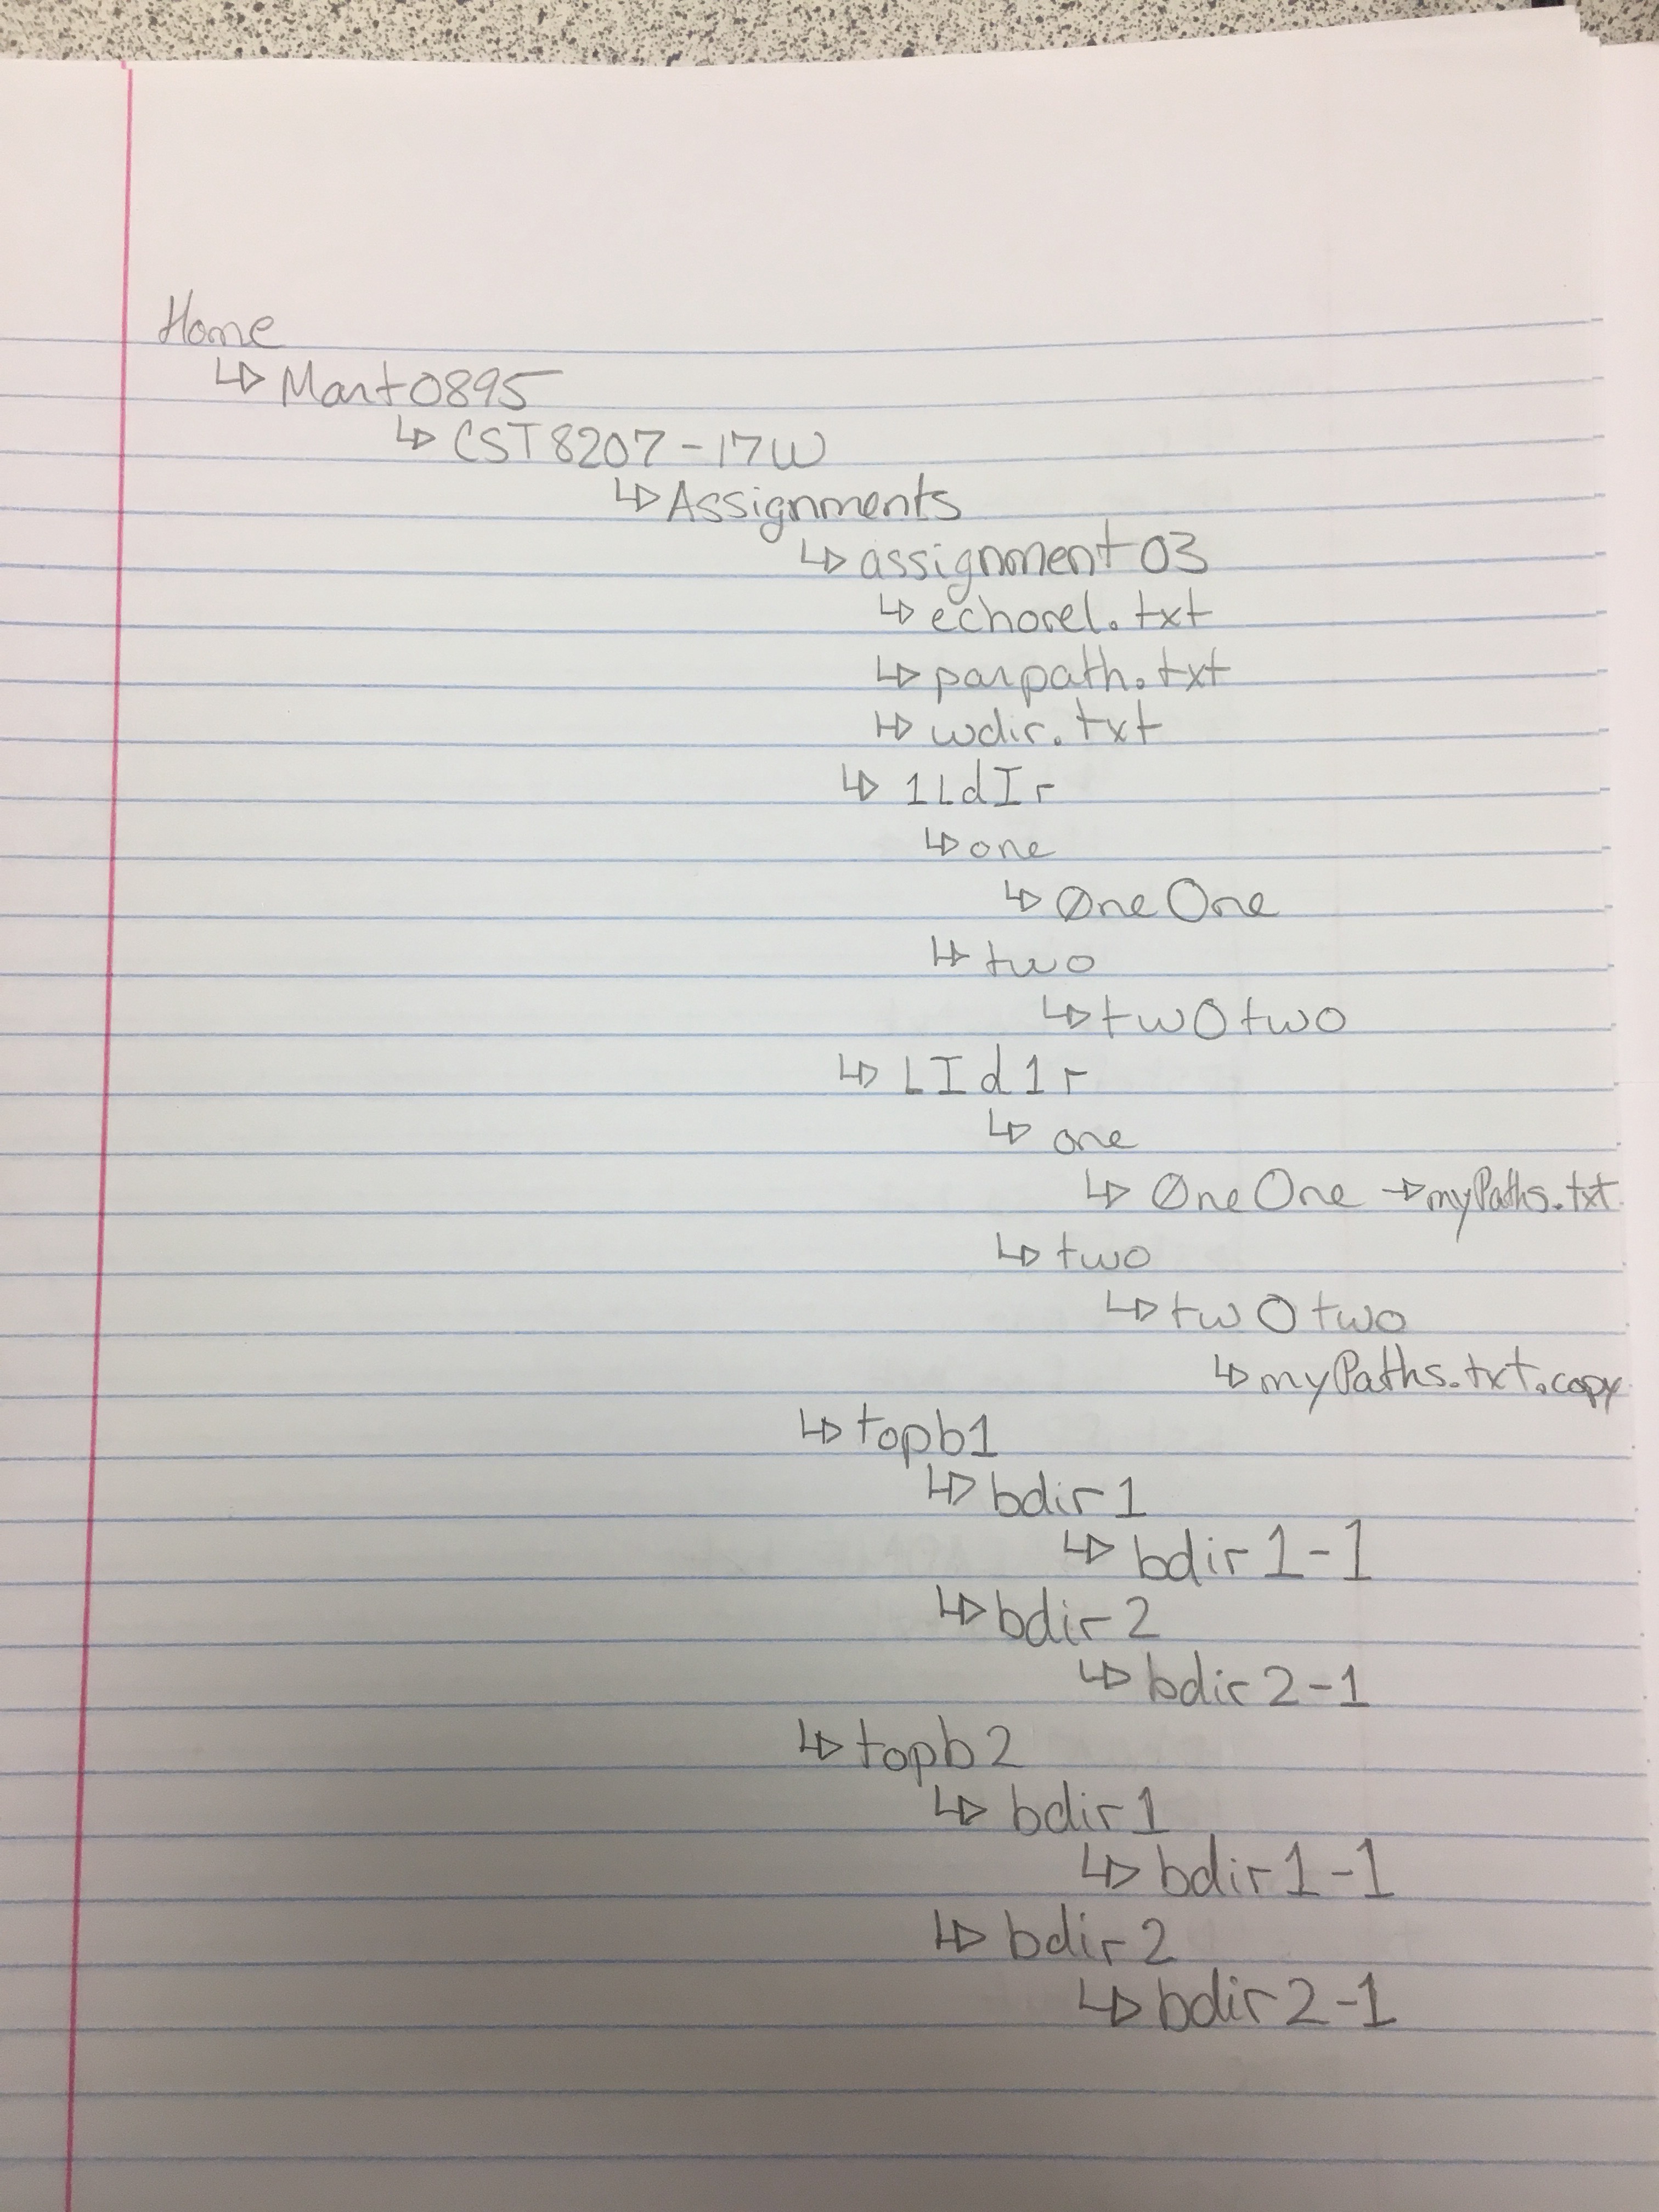 Home
↳ Mart0895
↳ CST8207-17W
↳ Assignments
↳ assignment03
↳ echorel.txt
↳ parpath.txt
↳ wdir.txt
↳ 1LdIr
↳ one
↳ 0neOne
↳ two
↳ twOtwo
↳ LId1r
↳ one
↳ 0neOne → myPaths.txt
↳ two
↳ twOtwo
↳ myPaths.txt.copy
↳ topb1
↳ bdir1
↳ bdir1-1
↳ bdir2
↳ bdir2-1
↳ topb2
↳ bdir1
↳ bdir1-1
↳ bdir2
↳ bdir2-1